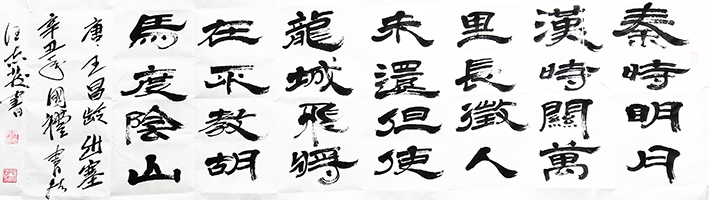 秦時明月
漢時關萬
里長徵人
未還但使
龍城飛將
在不教胡
馬度陰山
唐王昌龄出塞
辛丑年國禮書
書